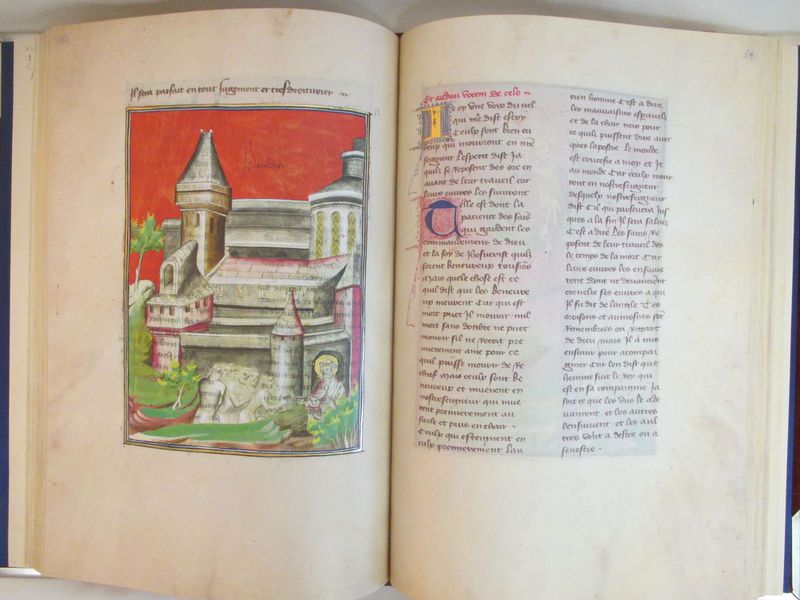 Il sera parfait en tout jugement et tres droiturier
Et audivi vocem de celo
Ie oy une voix du ciel
qui me dist escry
Ceulx sont bien eu
reux qui mourront en nre
seigneur Lesperit dist Ia
quilz se reposent des ore en
avant de leur traveil car
leurs euvres les suivront
Celle est dont la
patience des sais
qui gardent les
commandemens de dieu
et la foy de Ihesucrist quilz
soient beneureux tousiors
Mais quele chose est ce
quil dist que les beneure
ux meurent Car qui est
mort puet Il mourir nul
mort sans doubte ne puet
mourir sil ne recoit pre
mierement ame pour ce
quil puisse mourir de re
chief Mais ceulx sont be
neureux et meurent en
nostreseigneur qui meu
rent premierement au
siecle et puis en char
Ceulx qui estreignent en
eulx premierement lan
cien homme Cest a dire
les mauvaises
et de la char neis pour
ce quilz puissent dire avec
ques lapostre Le monde
est crucefie a moy et Ie
au monde Car ceulx mour
ront en nostreseigneur
desquelx nostreseigneur
dist Cil qui parsevera Ius
ques a la fin Il sera saluez
Cest a dire Les sans re
posent de leur traveil des
le temps de la mort Car
leurs euvres les ensuive
ront dont ne
cornelie ses euvres a qui
Il fu dit de langele Tes
oroisons et aumosnes sot
Remembrees ou regart
de dieu mais Il a mis
ensuivir pour acompai
gner Car len dist que
homme suit le roy qui
est en sa compaignie Ia
soit ce que les uns le ade
vancent et les autres
lensuivent et les aul
tres vont a destre ou a
senestre